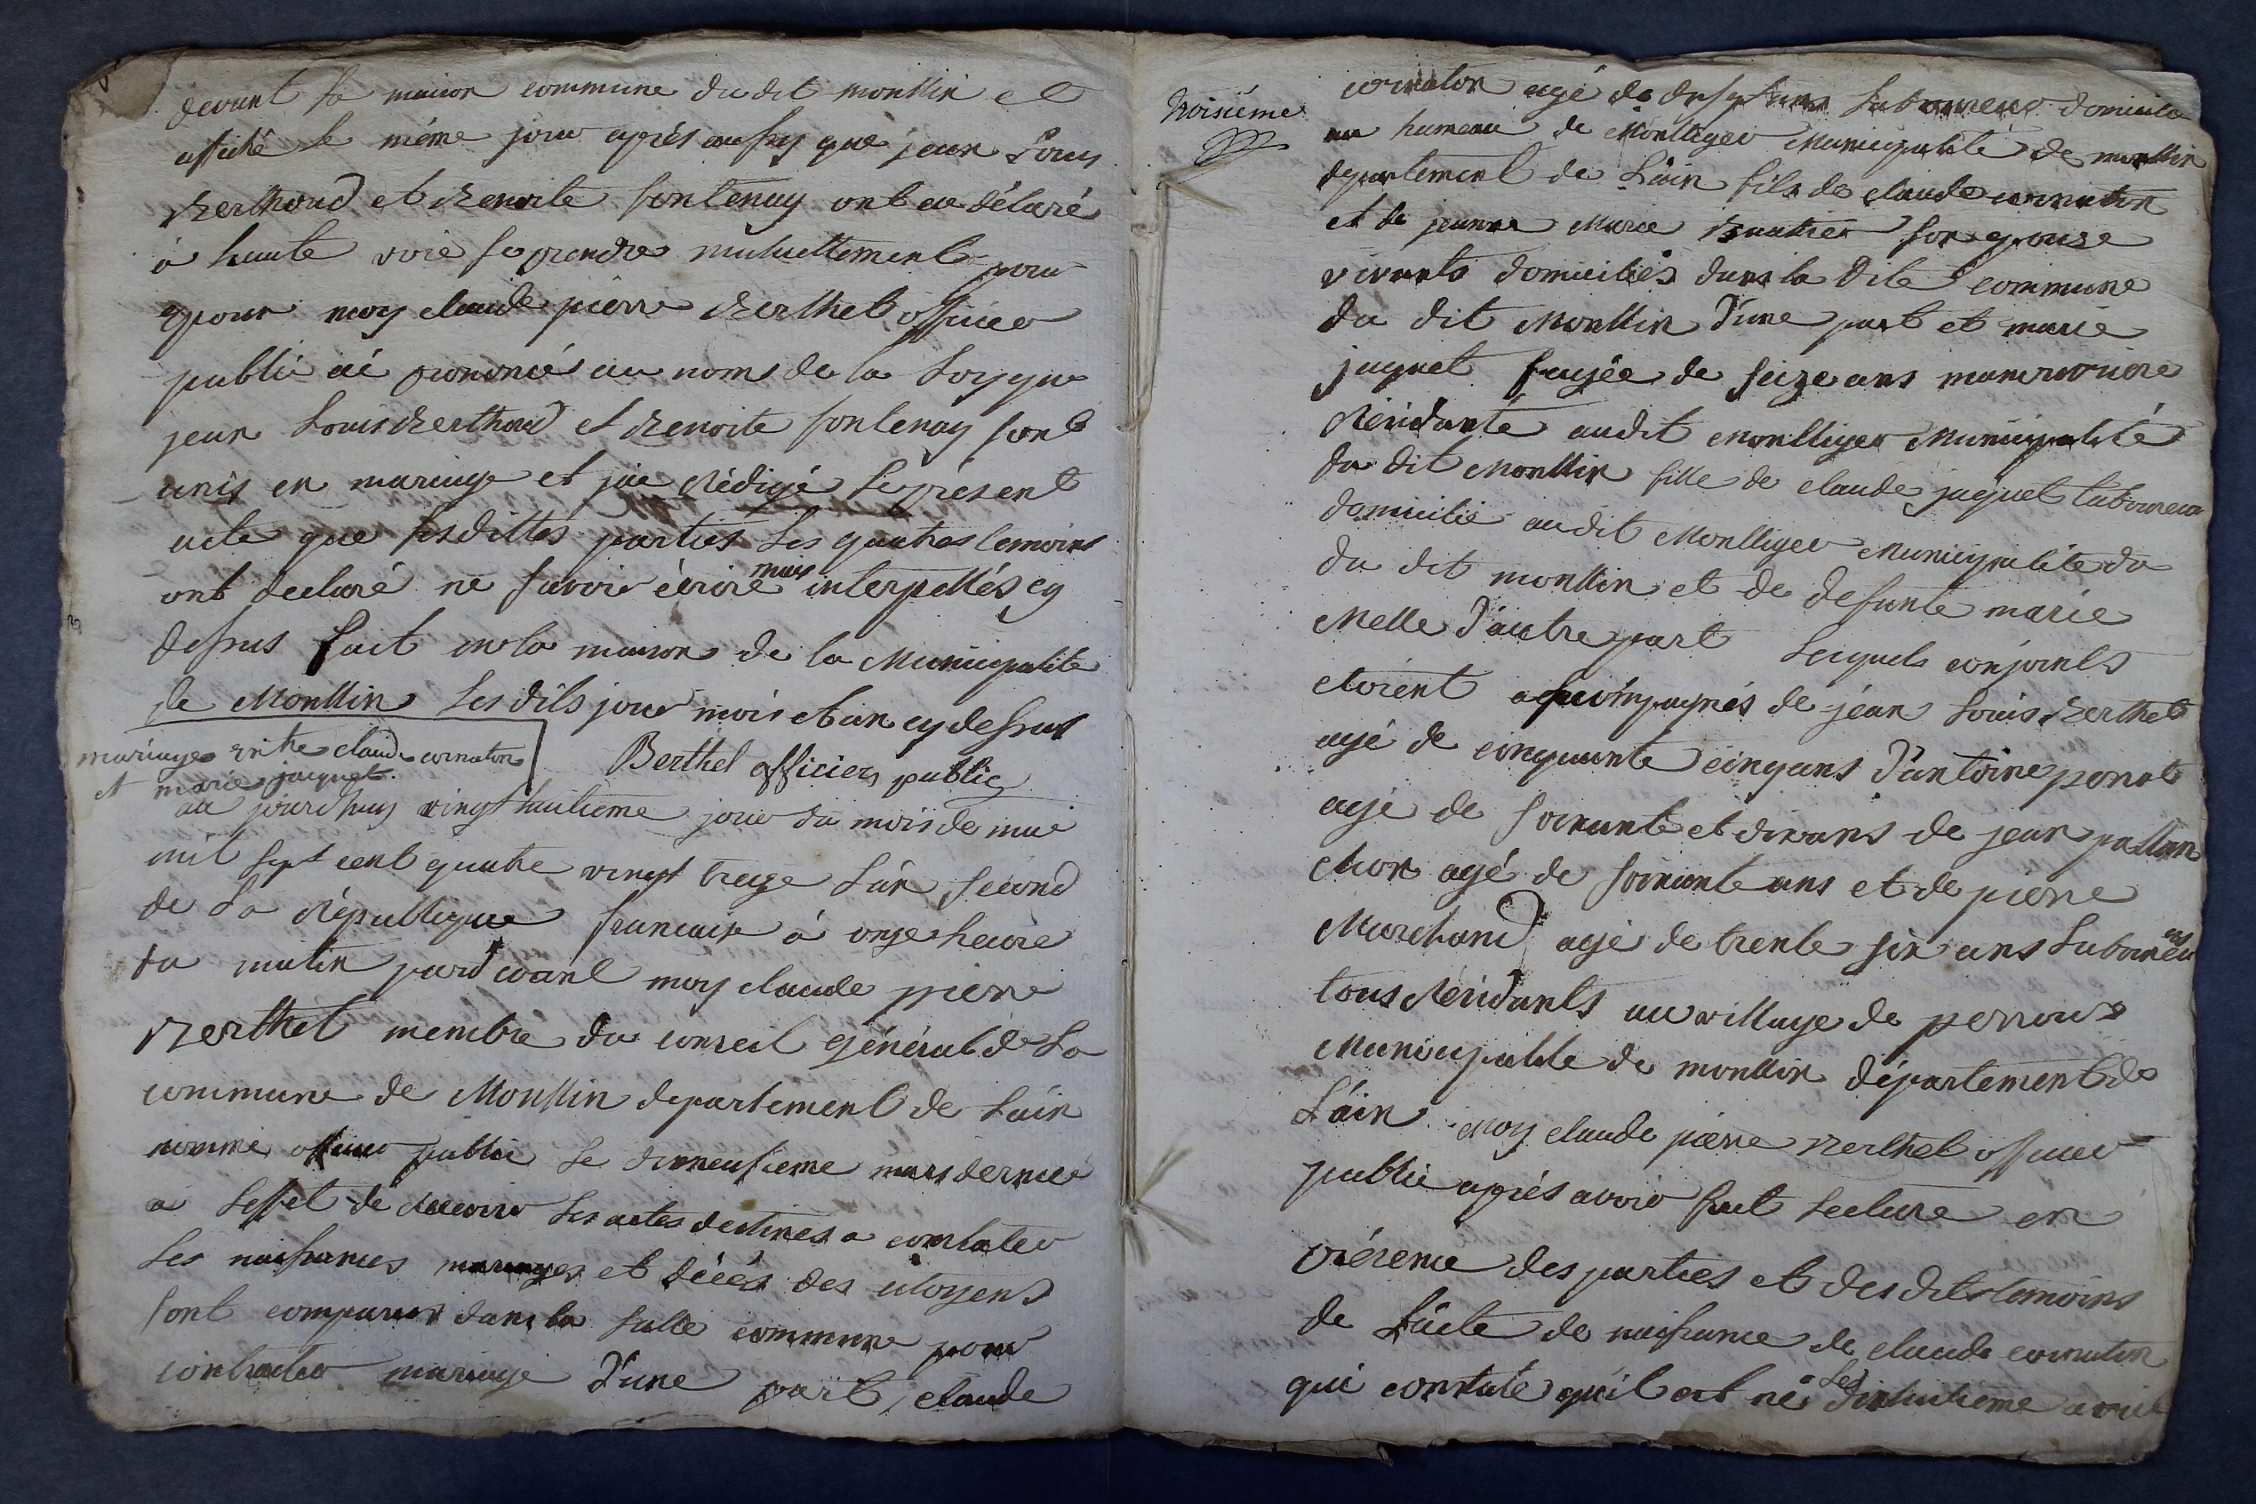 devant la maison commune du dit monllin et
affiché le même jour après aussy que jean Louis
Berthoud et Benoite fontenay ont eu déclaré
à haute voie se prendre mutuellement pour
epoux moy claude pierre Berthet officier
public ai prononcé au noms de la Loy que
jean Louis Berthoud et Benoite fontenay sont
unis en mariage et j'ai rédigé le présent
acte que les dittes parties Les quatres temoins
ont declaré ne savoir écrire mais interpellés cy
dessus fait en la maison de la Municipalité
de Monllin Les dits jour mois et an cy dessus
Berthet officiers public
mariage entre claude cornaton
et marie jaquet.
au jourdhuy vingt huitieme jour du mois de mai
mil sept cent quatre vingt treize L'an second
de La République francaise à onze heure
du matin pardevant moy claude pierre
Berthet membre du conseil général de La
commune de Monllin departement de L'ain
nommé officier public le dixneufieme mars dernier
a L'effet de recevoir Les actes destines a constater
Les naissances mariages et décès des citoyens
sont comparus dans la salle commune pour
contracter mariage D'une part claude
troisième
cornaton agé de Laboureur domicilié
au hameau de Monlliger Municipalité de monllin
departement de L'ain fils de claude cornaton
et de jeanne Marie son epouse
vivants domiciliés dans la dite commune
du dit Monllin D'une part et marie
jaquet agée de seize ans manouvriere
Résidante audit monlliger Municipalité
du dit Monllin fille de claude jaquet Laboureur
domicilié audit Monlliger Municipalité du
du dit monllin et de defunte marie
Melle D'autre part Lesquels conjoints
etoient accompagnés de jean Louis Berthet
agé de cinquante cinq ans D'antoine ponat
agé de soixante et dix ans de jean
agé de soixante ans et de pierre
Marchand agé de trente six ans Laboureurs
tous Résidants au village de perroux
Municipalité de monllin département de
L'ain moy claude pierre Berthet officier
public après avoir fait Lecture en
présence des parties et des dits temoins
de L'acte de naissance de claude cornaton
qui constate qu'il est né Le dixhuitieme avril